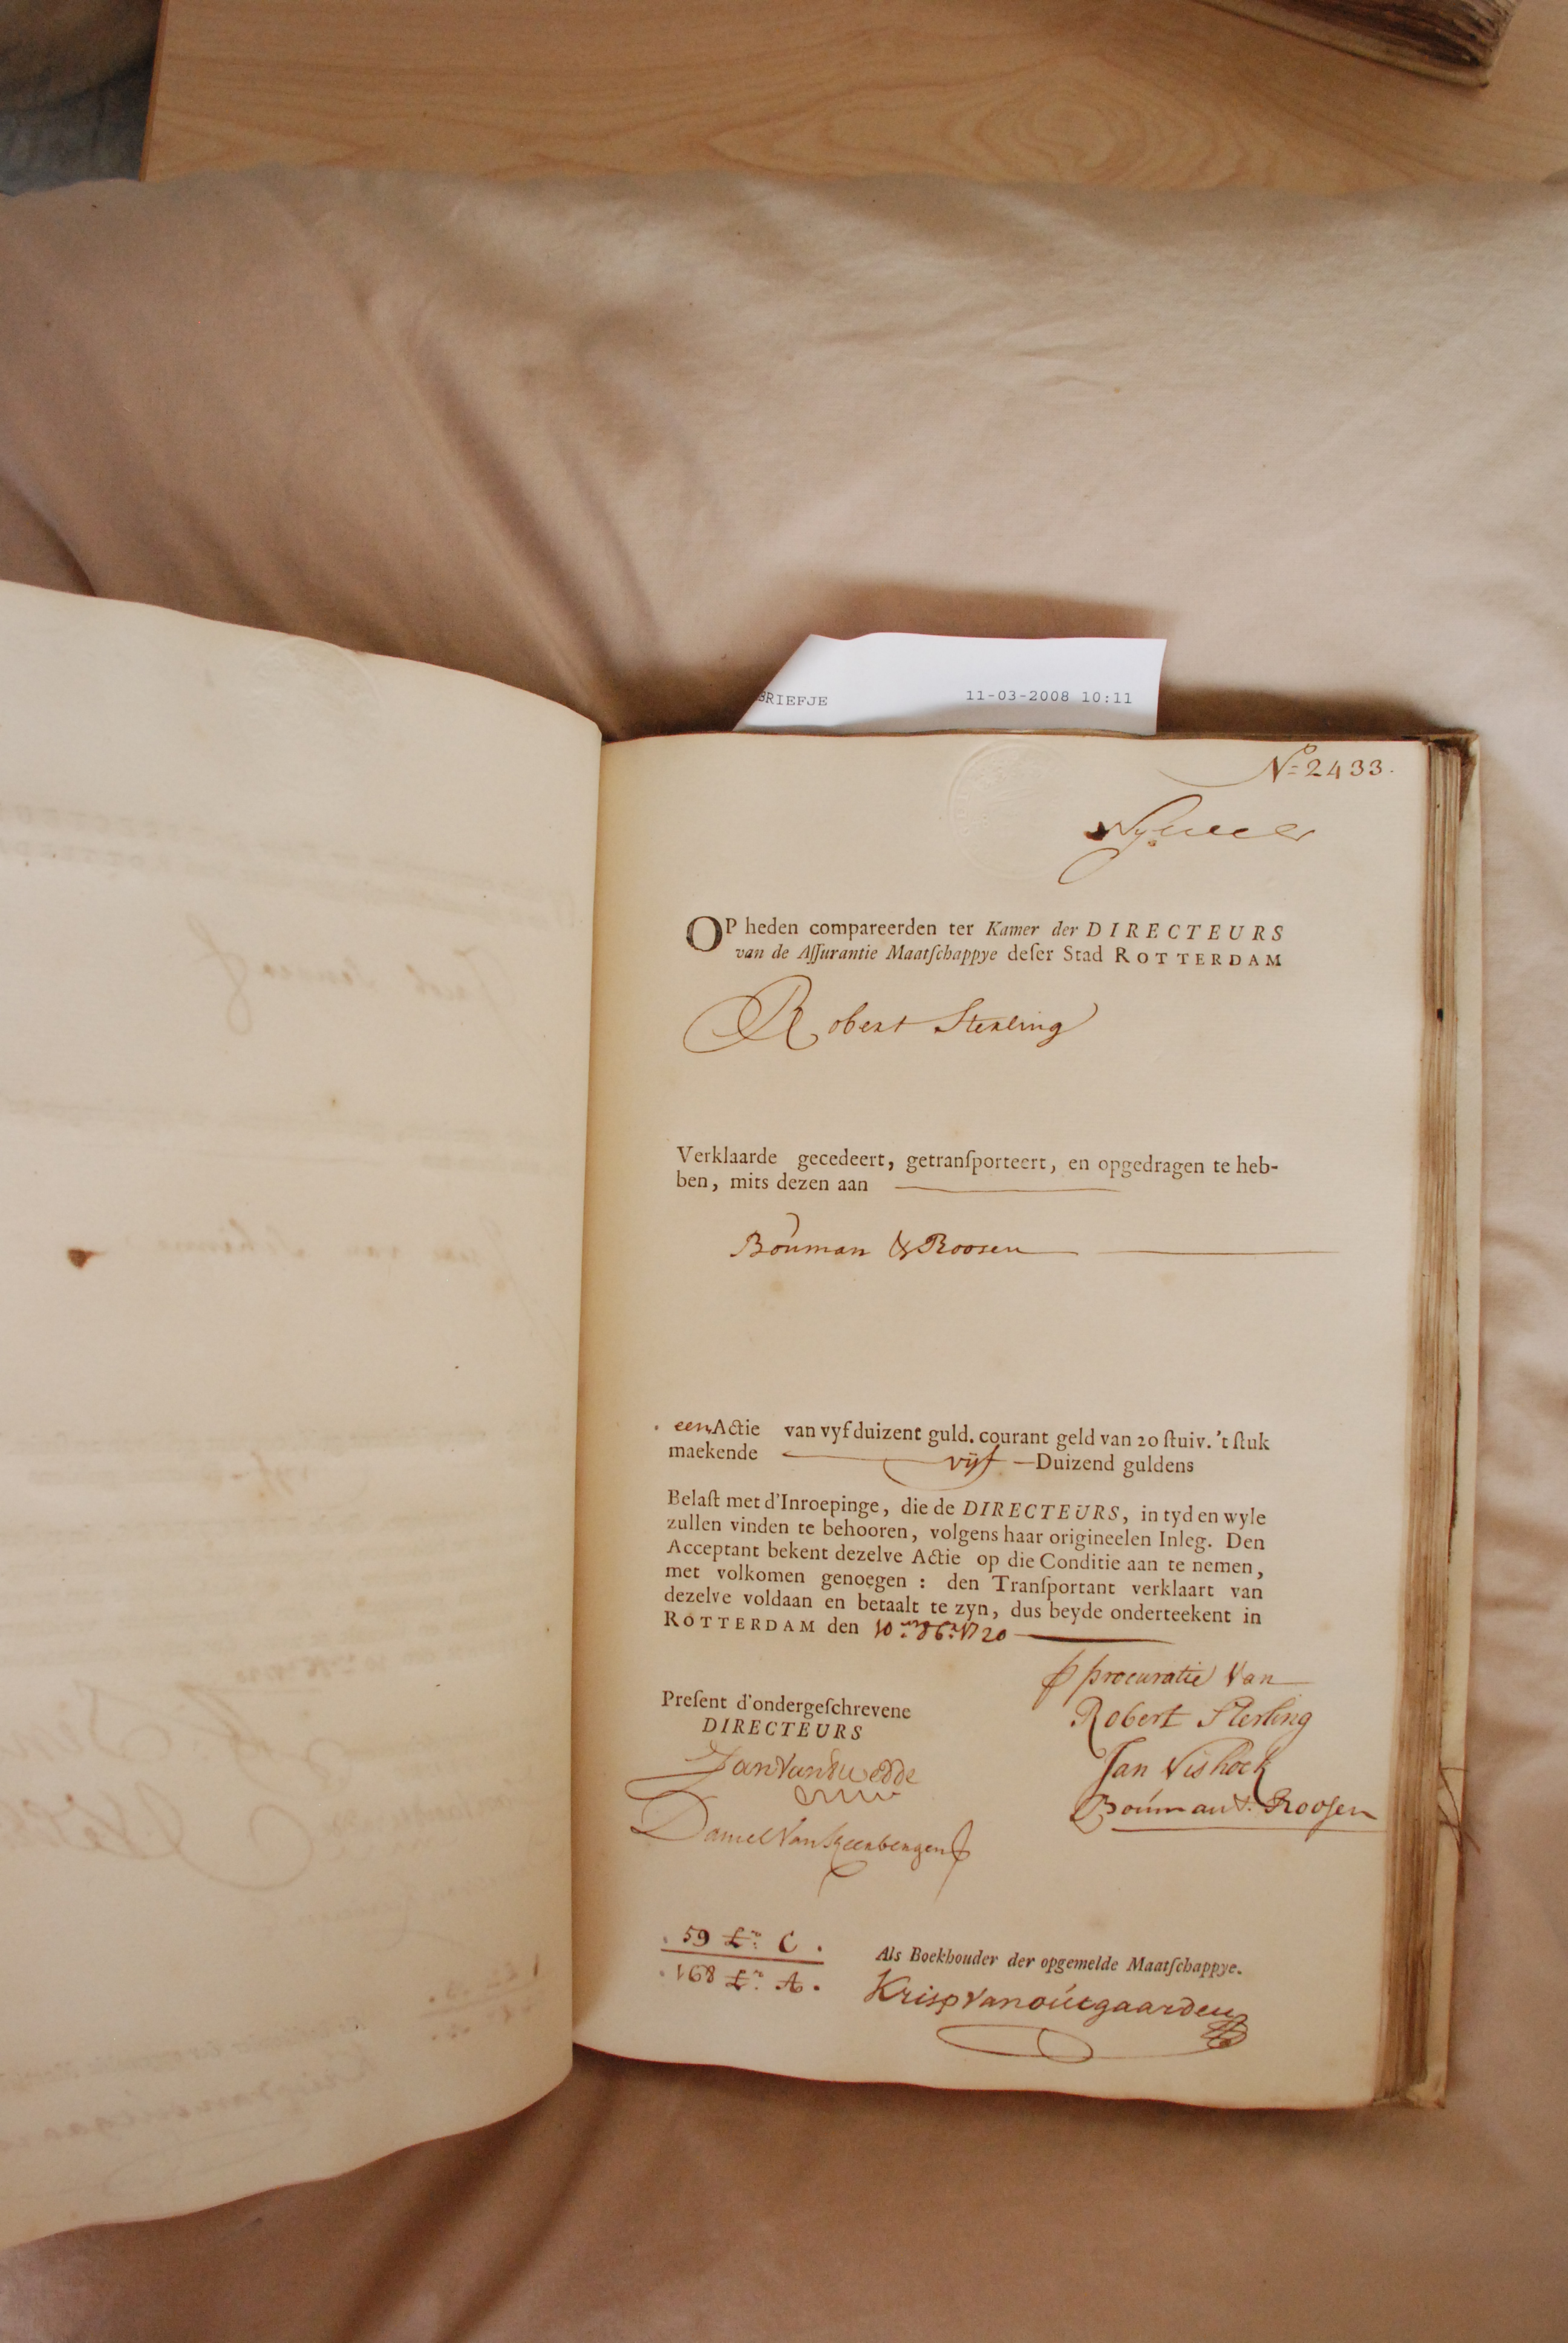 BRIEFJE 11-03-2008 10:11
No 2433.
OP heden compareerden ter Kamer der DIRECTEURS
van de Aſſurantie Maatſchappye deſer Stad ROTTERDAM
Robert Sterling
Verklaarde gecedeert, getranſporteert, en opgedragen te heb-
ben, mits dezen aan
Bouman & Roosen
een Actie van vyf duizent guld. courant geld van 20 ſtuiv. 't ſtuk
maekende vijf Duizend guldens
Belaſt met d'Inroepinge, die de DIRECTEURS, in tyd en wyle
zullen vinden te behooren, volgens haar origineelen Inleg. Den
Acceptant bekent dezelve Actie op die Conditie aan te nemen,
met volkomen genoegen : den Tranſportant verklaart van
dezelve voldaan en betaalt te zyn, dus beyde onderteekent in
ROTTERDAM den 10 8br 1720
p procuratie Van
Robert Sterling
Jan Vishoek
Boúman & Rooſen
Preſent d'ondergeſchrevene
DIRECTEURS
Daniel Van
59 Lr C.
168 Lr A.
Als Boekhouder der opgemelde Maatſchappye.
Krisp van oútgaarden